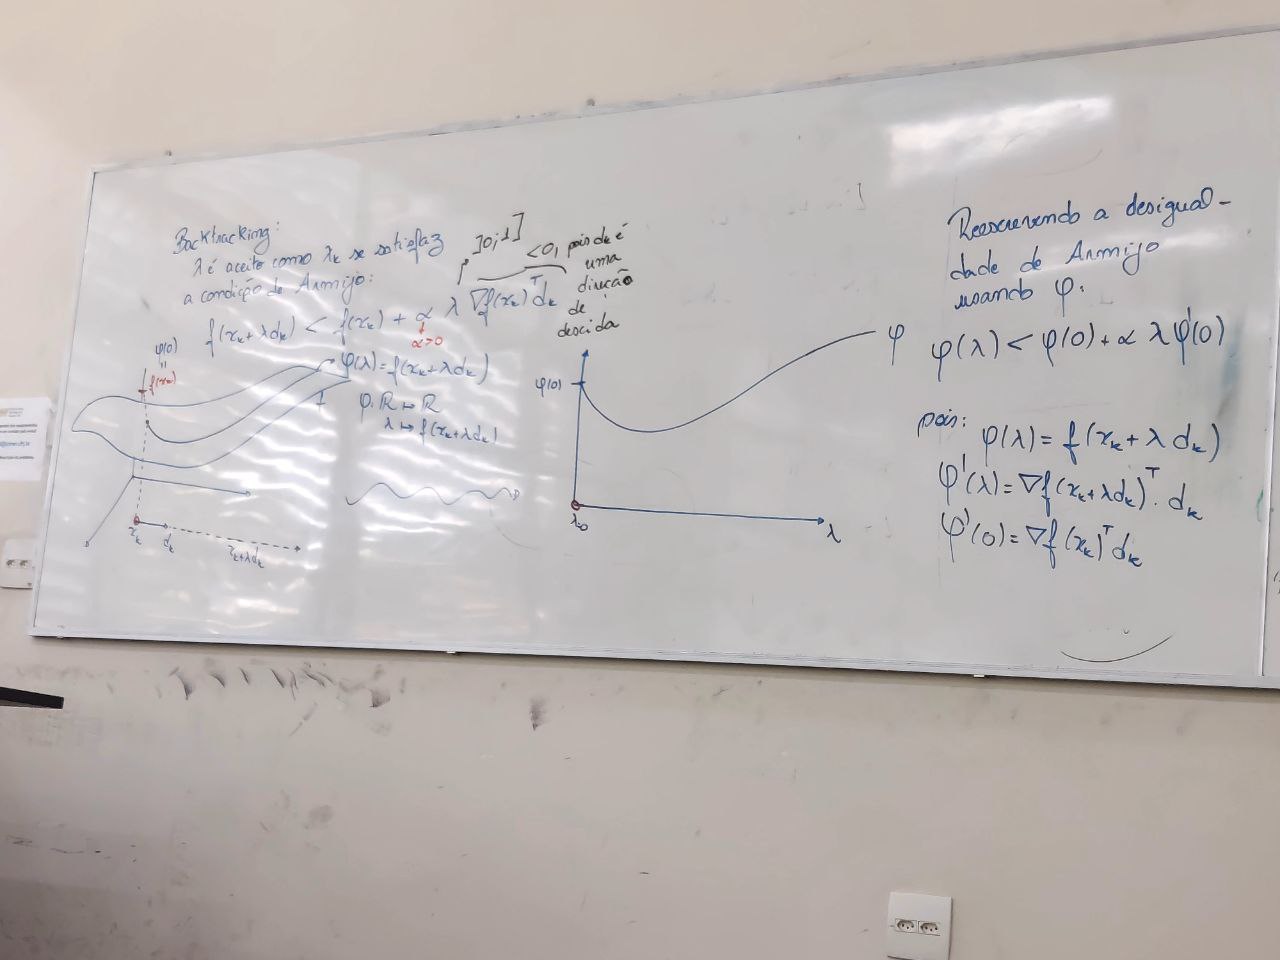 Backtracking:
λ é aceito como λₖ se satisfaz
a condição de Armijo:
]0;1]
<0, pois dₖ é
uma
direção
de
descida
f(xₖ+λdₖ) < f(xₖ) + α λ ∇f(xₖ)ᵀdₖ
α>0
φ(0)
=
f(xₖ)
φ(λ)=f(xₖ+λdₖ)
f
φ: ℝ ↦ ℝ
λ ↦ f(xₖ+λdₖ)
xₖ
dₖ
xₖ+λdₖ
φ(0)
φ
λ
Reescrevendo a desigual-
dade de Armijo
usando φ.
φ(λ) < φ(0) + α λ φ'(0)
pois:
φ(λ) = f(xₖ + λ dₖ)
φ'(λ) = ∇f(xₖ+λdₖ)ᵀ. dₖ
φ'(0) = ∇f(xₖ)ᵀ dₖ